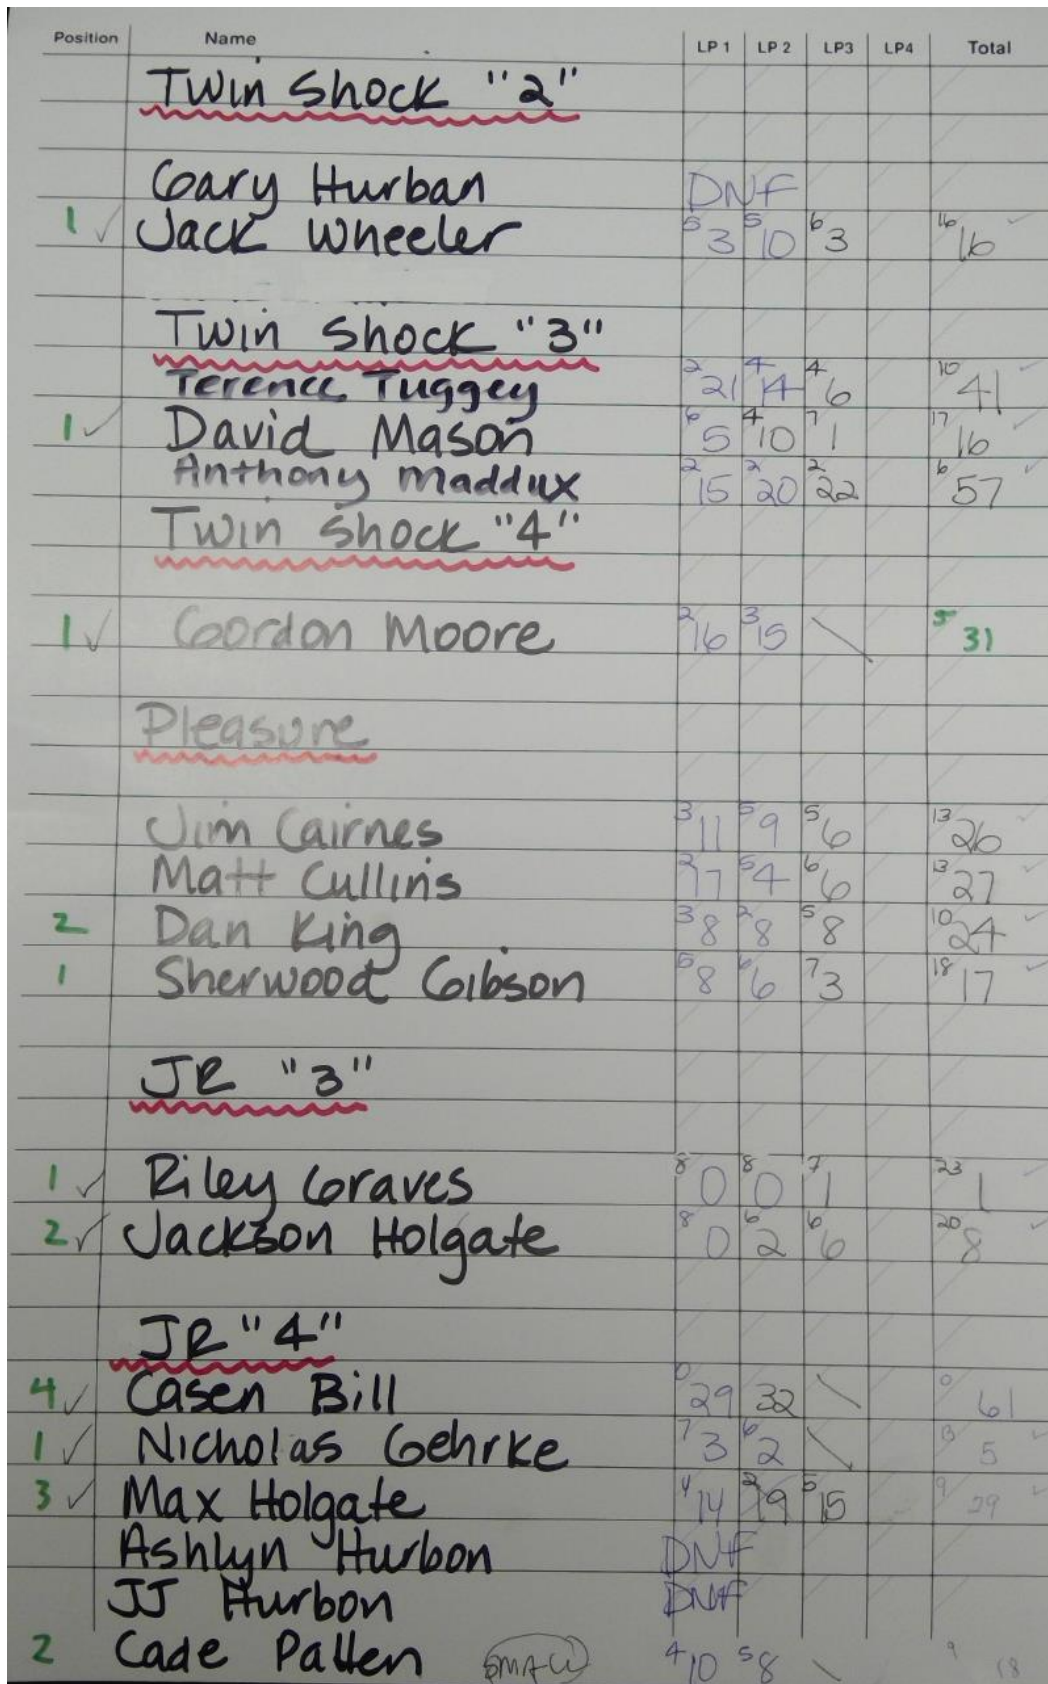 Position Name LP 1 LP 2 LP3 LP4 Total
Twin Shock "2"
Gary Hurban DNF
1 ✓ Jack Wheeler 5 3 5 10 6 3 16 16 ✓
Twin Shock "3"
Terence Tuggey 2 21 4 14 4 6 10 41 ✓
1 ✓ David Mason 6 5 4 10 7 1 17 16 ✓
Anthony Maddux 2 15 2 20 2 22 6 57 ✓
Twin Shock "4"
1 ✓ Gordon Moore 2 16 3 15 \ 5 31
Pleasure
Jim Cairnes 3 11 5 9 5 6 13 26 ✓
Matt Cullins 2 17 5 4 6 6 13 27 ✓
2 Dan King 3 8 2 8 5 8 10 24 ✓
1 Sherwood Gibson 5 8 6 6 7 3 18 17 ✓
JR "3"
1 ✓ Riley Graves 8 0 8 0 7 1 23 1 ✓
2 ✓ Jackson Holgate 8 0 6 2 6 6 20 8 ✓
JR "4"
4 ✓ Casen Bill 0 29 32 \ 0 61 ✓
1 ✓ Nicholas Gehrke 7 3 6 2 \ 13 5 ✓
3 ✓ Max Holgate 4 14 2 19 5 15 9 ✓
Ashlyn Hurbon DNF
JJ Hurbon DNF
2 Cade Patten 4 10 5 8 \ 9 18